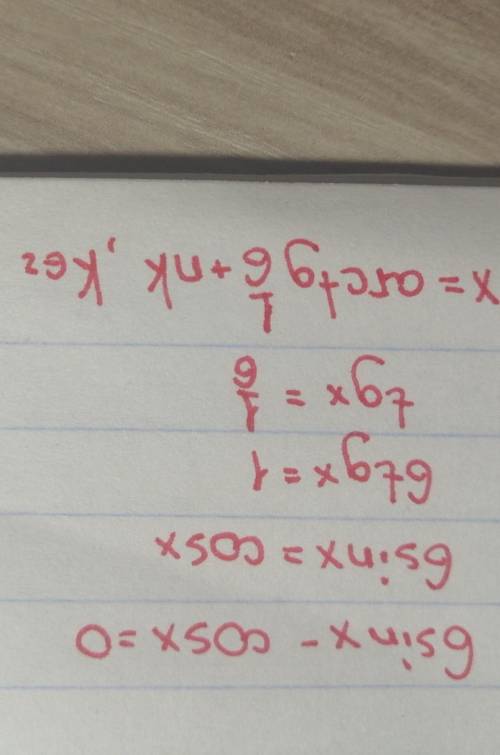 6sinx - cosx = 0
6sinx = cosx
6tgx = 1
tgx = 1/6
x = arctg 1/6 + πk, k∈z